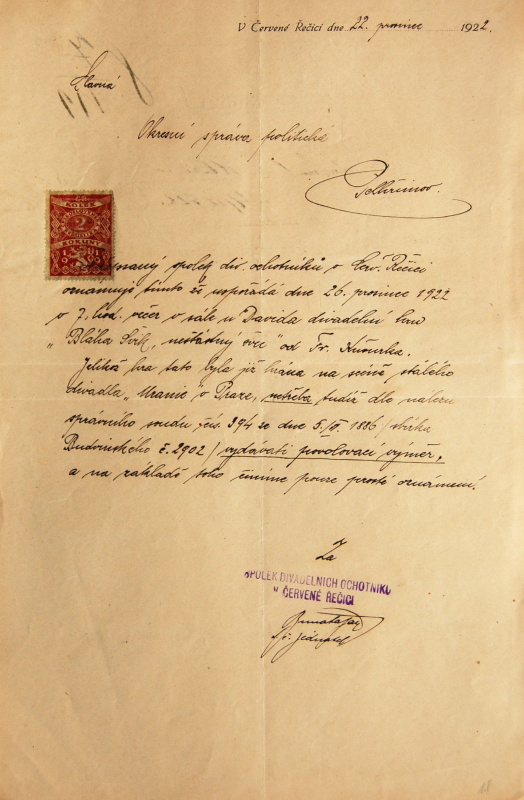 V Červené Řečici dne 22. prosince 1922.
Slavná
Okresní správa politická
Pelhřimov.
KOLEK
2
KORUNY
spolek div. ochotníků v Červ. Řečici
oznamuje tímto že uspořádá dne 26. prosince 1922
v 7. hod. večer v sále u Davida divadelní hru
"Bláha" od Fr.
Jelikož hra tato byla již hrána na scéně stálého
divadla "Uranie" v Praze, netřeba tudíž dle nálezu
správního soudu čís. 394 ze dne 5/II. 1886 / sbírka
Budvinského č. 2902 / vydávati povolovací výměr,
a na základě toho činíme pouze prosté oznámení.
Za
SPOLEK DIVADELNÍCH OCHOTNÍKŮ
V ČERVENÉ ŘEČICI
jednatel